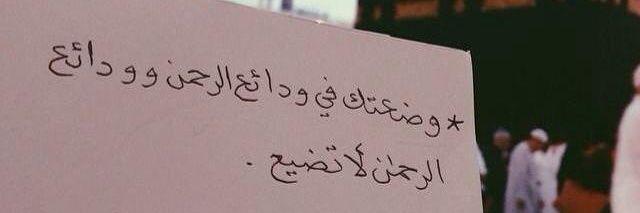 * وضعتك في ودائع الرحمن وودائع
الرحمٰن لا تضيع .